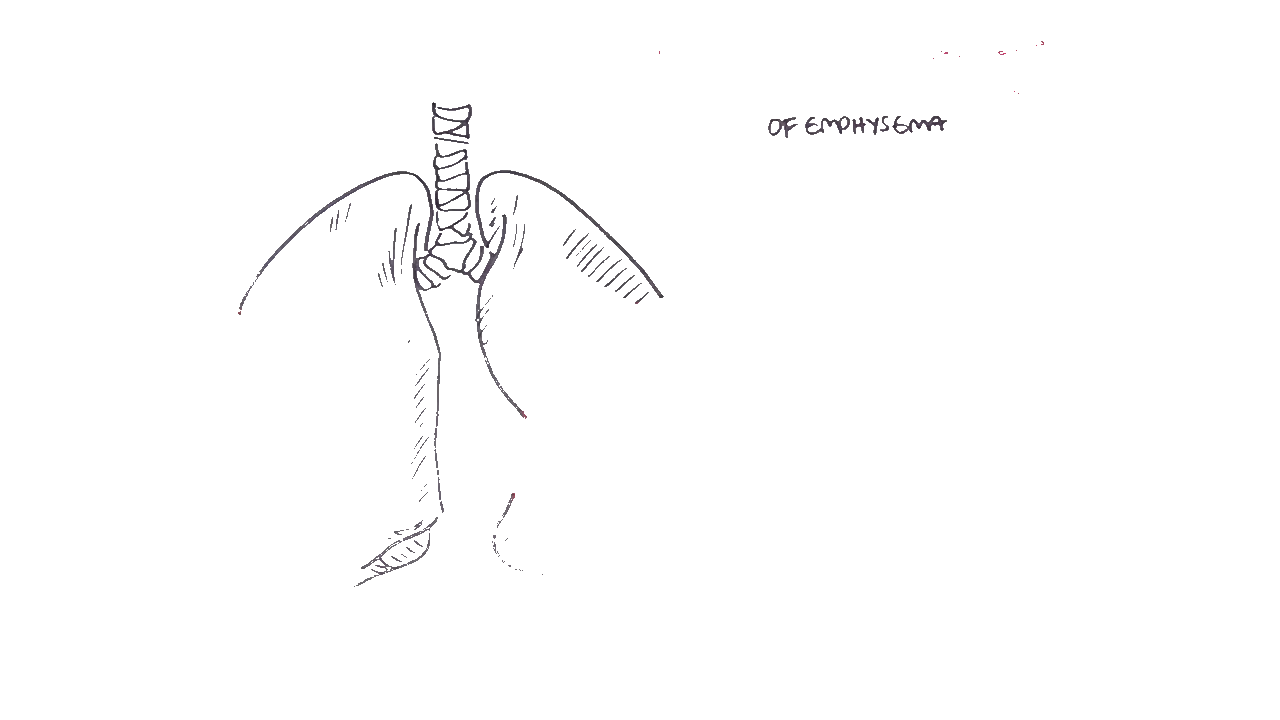 OF EMPHYSEMA